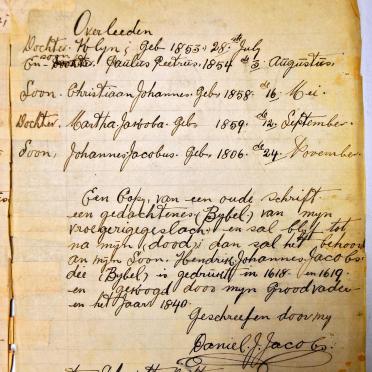 Overleeden
Dochter. Wlyn; Geb 1853. 28. ste July
En zoon Paulus Petrus. 1854 de 3. Augustus.
Soon. Christiaan Johannes. Geb. 1858. de 16. Mei.
Dochter. Martha Jacoba. Geb 1859. de 12. September.
Soon. Johannes Jacobus. Geb. 1806. de 24. November.
Een Copy. van een oude schrift
een gedachtenes (Bybel) van myn
vroegerigegeslach en sal blyf tot
na myn (dood) dan sal het behoord
an myn Soon. Hendrik Johannes Jacobs
die (Bybel) is gedrukt in 1618 - in 1619
en door myn Grood vader
en het Jaar 1840.
Geschreefen door my
Daniel. J. Jacobs.